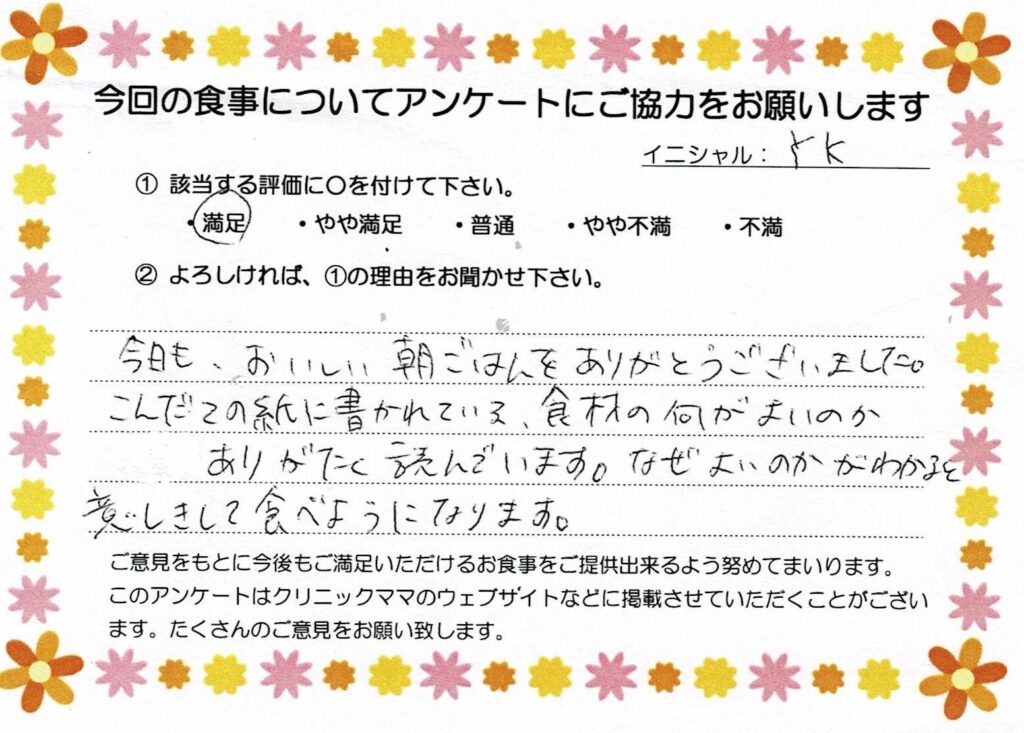 今回の食事についてアンケートにご協力をお願いします
イニシャル：YK
① 該当する評価に○を付けて下さい。
・満足 ・やや満足 ・普通 ・やや不満 ・不満
② よろしければ、①の理由をお聞かせ下さい。
今日も、おいしい朝ごはんをありがとうございました。
こんだての紙に書かれている、食材の何がよいのか
ありがたく読んでいます。なぜよいのかがわかると
意しきして食べようになります。
ご意見をもとに今後もご満足いただけるお食事をご提供出来るよう努めてまいります。
このアンケートはクリニックママのウェブサイトなどに掲載させていただくことがござい
ます。たくさんのご意見をお願い致します。